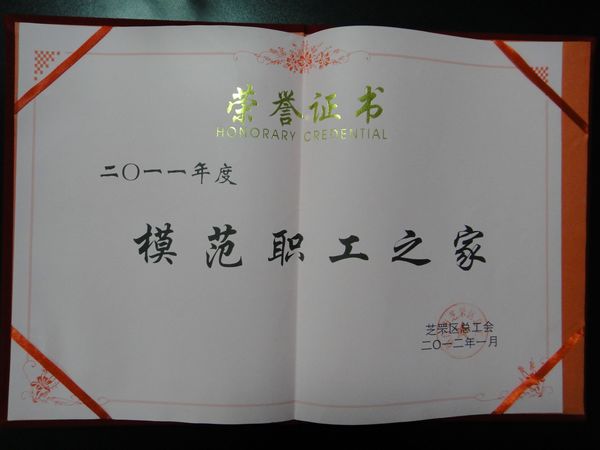 荣誉证书
HONORARY CREDENTIAL
二〇一一年度
模范职工之家
芝罘区总工会
二〇一二年一月